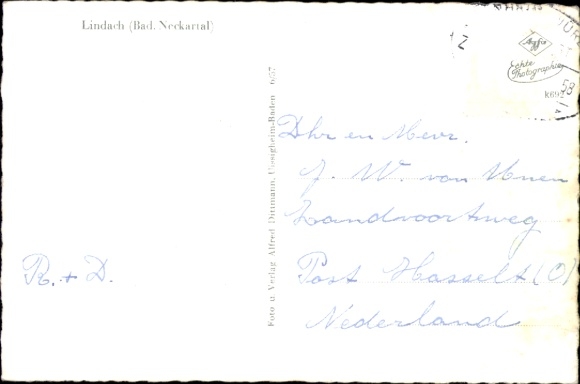 Lindach (Bad. Neckartal)
Agfa
Echte
Photographie
K69
58
Foto u. Verlag Alfred Dittmann, Uissigheim-Baden 657
Dhr en Mevr.
J. W. van Unen
Zandvoortweg
Post Hasselt (O)
Nederland
R. + D.